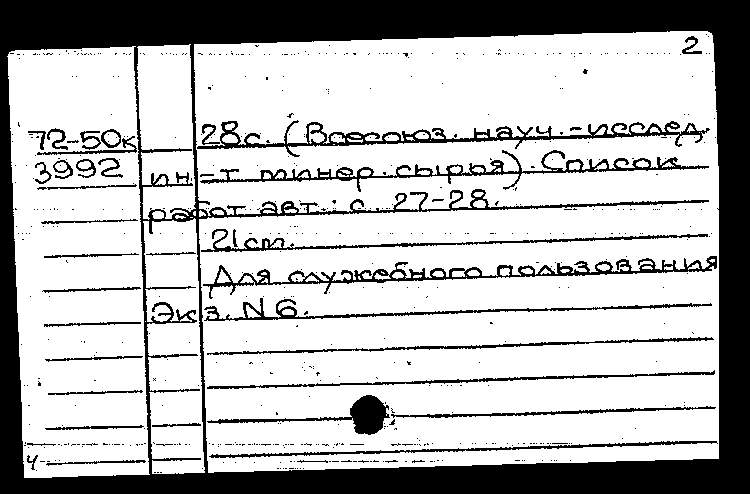 2
72-50к 28с. (Всесоюз. науч.-исслед.
3992 ин-т минер. сырья). Список
работ авт.: с. 27-28.
21см.
Для служебного пользования
Экз. N 6.
4